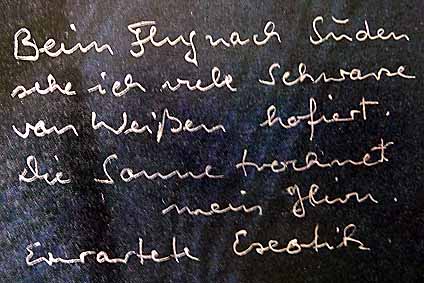 Beim Flug nach Süden
sehe ich viele Schwarze
von Weißen hofiert.
Die Sonne trocknet
mein Hirn.
Erwartete Exotik